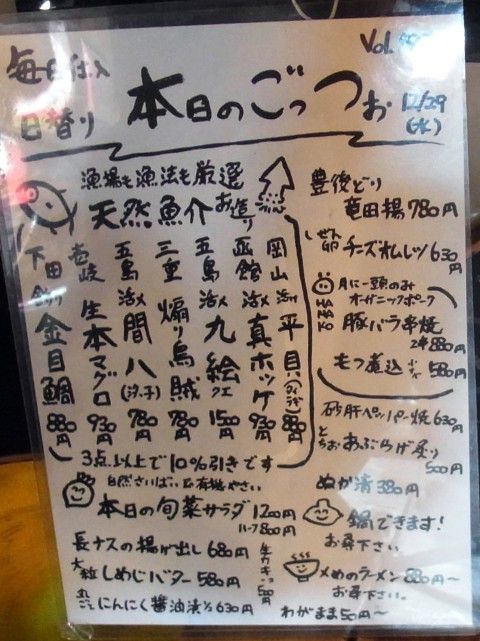 毎日仕入
日替り
本日のごっつぉ
Vol.
12/29
(水)
漁場も漁法も厳選
天然魚介お造り
岡山 活〆 平貝(タイラギ) 880円
函館 活〆 真ホッケ 930円
五島 活〆 九絵クエ 1500円
三重 煽り烏賊 780円
五島 活〆 間八(汐っ子) 780円
壱岐 生本マグロ 930円
下田 釣 金目鯛 880円
3点以上で10%引きです
自然さいばい&有機やさい
本日の旬菜サラダ 1200円
ハーフ800円
長ナスの揚げ出し 680円
大粒 しめじバター 580円
丸ごと にんにく醤油漬½ 630円
生カキ1つ 500円
豊後どり
竜田揚 780円
しぜん卵 チーズオムレツ 630円
月に一頭のみ
オーガニックポーク
HANAKO
豚バラ串焼
2本 880円
もつ煮込 580円
砂肝ペッパー焼 630円
とちお あぶらげ炙り
500円
ぬか漬 380円
鍋できます!
お尋下さい。
〆めのラーメン 880円〜
お尋下さい。
わがまま50円〜